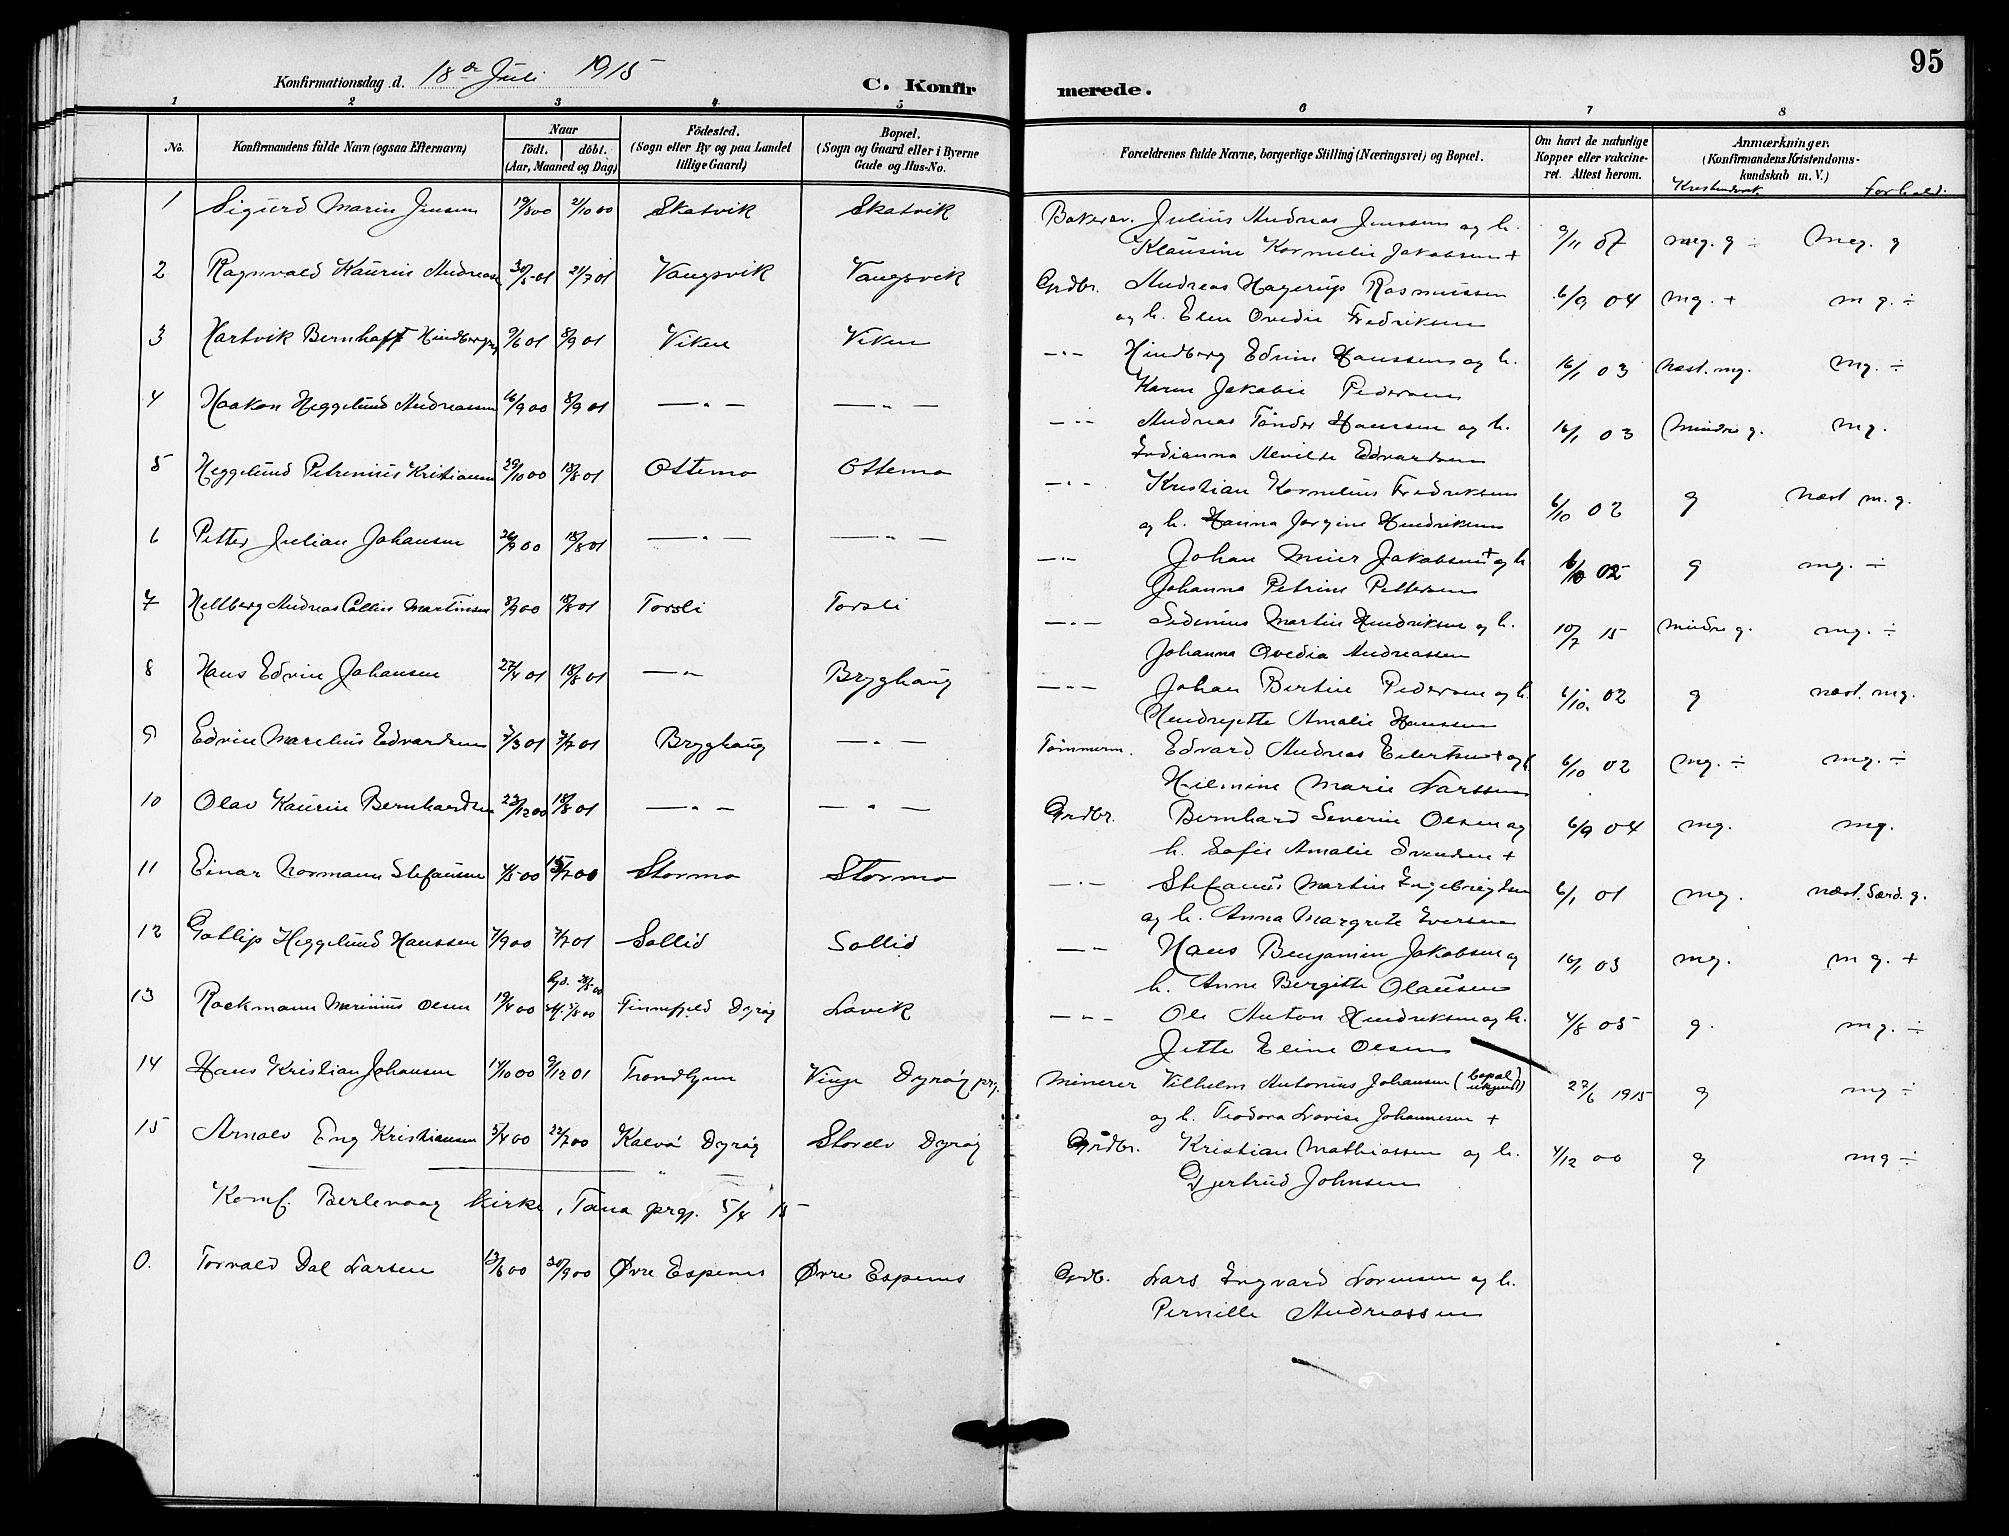 95
Konfirmationsdag d. 18de Juli 1915
C. Konfirmerede.
1 2 3 4 5 6 7 8
No.
Konfirmandens fulde Navn (ogsaa Efternavn)
Naar
födt. döbt.
(Aar, Maaned og Dag)
Födested.
(Sogn eller By og paa Landet
tillige Gaard)
Bopæl.
(Sogn og Gaard eller i Byerne
Gade og Hus-No.
Forældrenes fulde Navne, borgerlige Stilling (Næringsvei) og Bopæl.
Om havt de naturlige
Kopper eller vakcine-
ret. Attest herom.
Anmærkninger.
(Konfirmandens Kristendoms-
kundskab m. V.)
Kristendomsk. Forhold.
1 Sigurd Marin Jensen 19/8 00 21/10 00 Skatvik Skatvik Julius Andreas Jenssen og h. 9/11 07 meg. g ÷ Meg. g
Klausine Kornelie Jakobsen +
2 Ragnvald Kaurin Andreasen 30/5 01 21/7 01 Vangsvik Vangsvik Grdbr. Andreas Hagerup Rasmussen 6/9 04 mg. + mg. ÷
og h. Elen Ovedie Fredriksen
3 Hartvik Bernhoft Hindbergsen 9/6 01 8/9 01 Viken Viken —"— Hindberg Edvin Hanssen og h. 16/1 03 næst. mg. mg. ÷
Karen Jakobie Pedersen
4 Haakon Heggelund Andreassen 16/9 00 8/9 01 —"— —"— —"— Andreas Tønder Hanssen og h. 16/1 03 mindre g. mg.
Indianna Nevilde Edvardsen
5 Heggelund Petrenius Kristiansen 29/10 00 18/8 01 Ottemo Ottemo —"— Kristian Kornelius Fredriksen 6/10 02 g næst m.g.
og h. Hanna Jørgine Hendriksen
6 Petter Julian Johansen 26/9 00 18/8 01 —"— —"— —"— Johan Meier Jakobsen + og h. 6/10 02 g mg. ÷
Johanna Petrine Pettersen
7 Hellberg Andreas Collin Martinsen 8/9 00 18/8 01 Torsli Torsli —"— Sedenius Martin Hendriksen og h. 10/7 15 mindre g. mg. ÷
Johanna Ovedia Andreassen
8 Hans Edvin Johansen 27/4 01 18/8 01 —"— Bryghaug —"— Johan Bertin Pedersen og h. 6/10 02 g næst. mg.
Hendrejette Amalie Hanssen
9 Edvin Marelius Edvardsen 7/3 01 7/7 01 Bryghaug —"— Tømmerm. Edvard Andreas Eilertsen + og h. 6/10 02 mg. ÷ mg. ÷
Hilmine Marie Larssen
10 Olav Kaurin Bernhardsen 23/12 00 18/8 01 —"— —"— Grdbr. Bernhard Severin Olsen og 6/9 04 mg. mg.
h. Sofie Amalie Svendsen +
11 Einar Normann Stefansen 4/5 00 15/7 00 Stormo Stormo —"— Stefanus Martin Ingebrigtsen 6/1 01 mg. næst. særd. g.
og h. Anna Margrete Eversen
12 Gotlip Heggelund Hanssen 7/9 00 7/7 01 Sollid Sollid —"— Hans Benjamin Jakobsen og 16/1 03 mg. mg. +
h. Anne Bergitte Olausen
13 Rockmann Marinius Olsen 19/4 00 Finnfjeld Dyrøy Lavik —"— Ole Anton Hendriksen og h. 4/8 05 g. mg. ÷
Jette Eline Olsen
14 Hans Kristian Johansen 14/10 00 9/12 01 Trondhjem Vinje Dyrøy prg. Minerer Vilhelm Antonius Johansen (bopæl ukjendt) 27/6 1915 g mg ÷
og h. Teodora Lovise Johannesen +
15 Arnold Eng Kristiansen 5/4 00 22/7 00 Kalvø Dyrøy Storelv Dyrøy Grdbr. Kristian Mathiassen og h. 4/12 00 g mg ÷
Gjertrud Johnsen
Komf. Berlevaag kirke, Tana prgj. 5/4 15
0. Torvald Dal Larsen 13/6 00 30/9 00 Øvre Espenes Øvre Espenes Grdb. Lars Ingvard Lorensen og h.
Pernille Andreassen